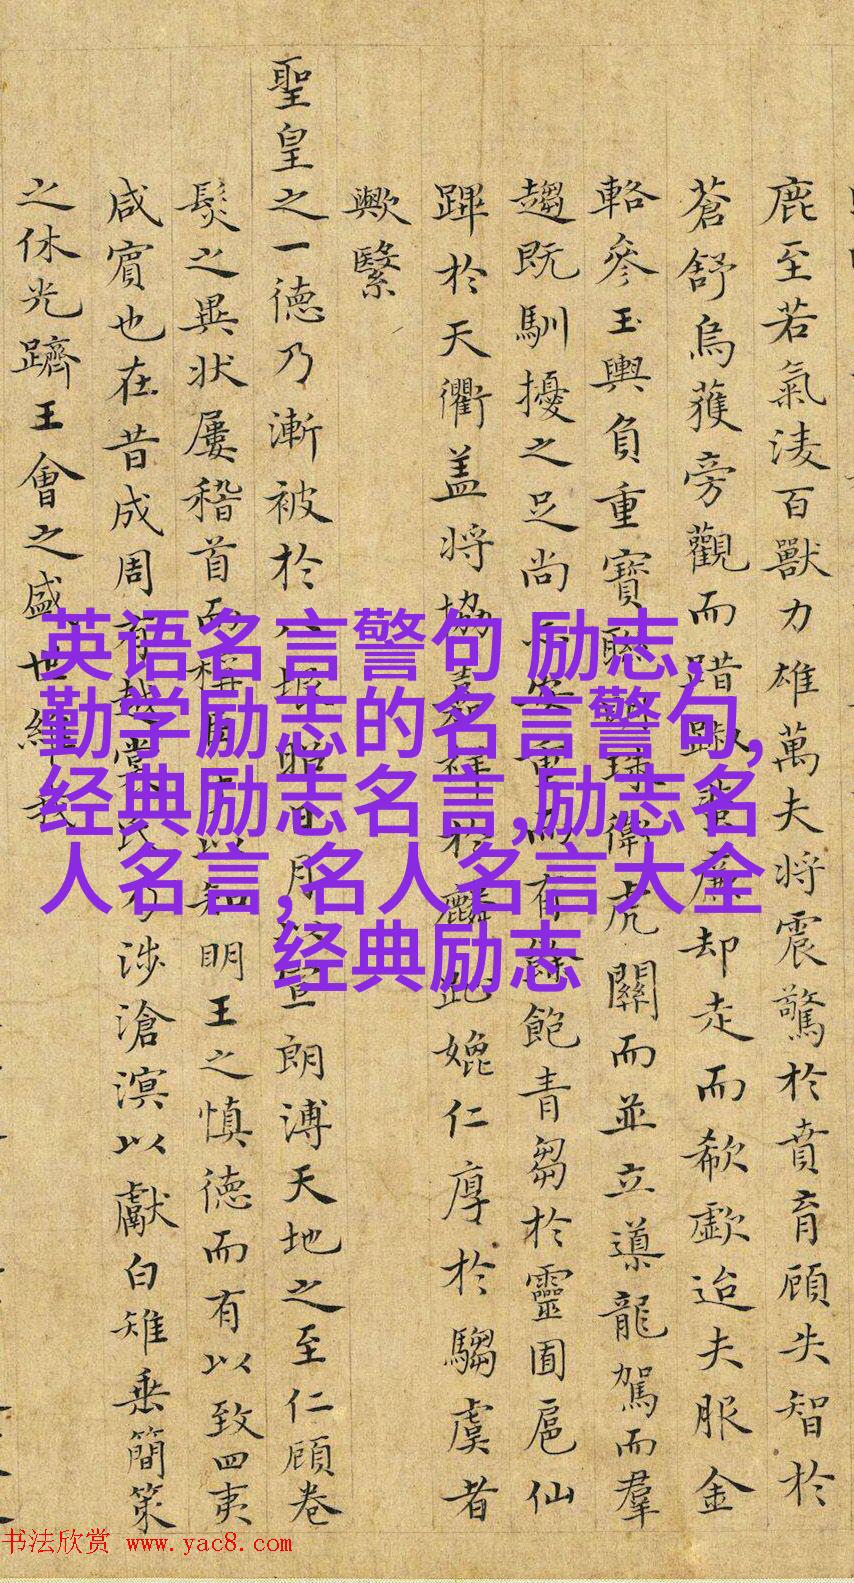 鹿至若氣淩百獸力雄萬夫將震驚於賁育顧失智於
蒼舒烏獲旁觀而踖踧蜚廉却走而欷歔迨夫服金
輅參玉輿負重寶衛虎關而並立導龍駕而羣
趨既馴擾之足尚安重而有餘飽青芻於靈囿扈仙
蹕於天衢蓋將協嘉祥於麟趾媲仁厚於騶虞者
歟繄
聖皇之一德乃漸被於日月宣朗溥天地之至仁顧卷
髮之異狀屢稽首而稱知明王之慎德而有以致四夷
咸賓也在昔成周有越裳氏乃涉滄溟以獻白雉垂簡策
之休光躋王會之盛世經我
英语名言警句 励志,
勤学励志的名言警句,
经典励志名言,励志名
人名言,名人名言大全
经典励志
书法欣赏 www.yac8.com